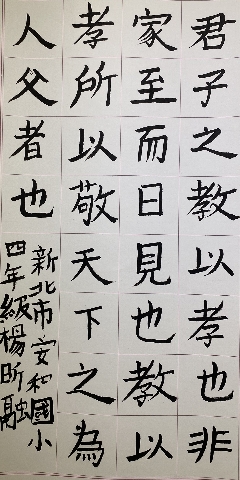 君子之教以孝也非
家至而日見也教以
孝所以敬天下之為
人父者也
新北市安和國小
四年級楊昕融